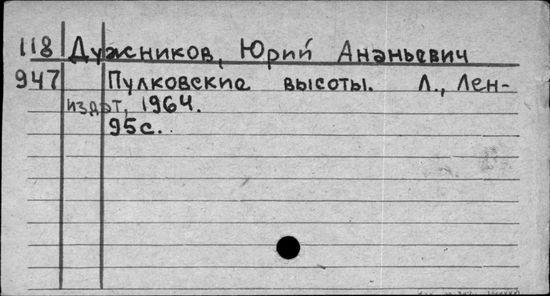 118 Дужников, Юрий Ананьевич
947 Пулковские высоты. Л., Лен-
издат, 1964.
95с.